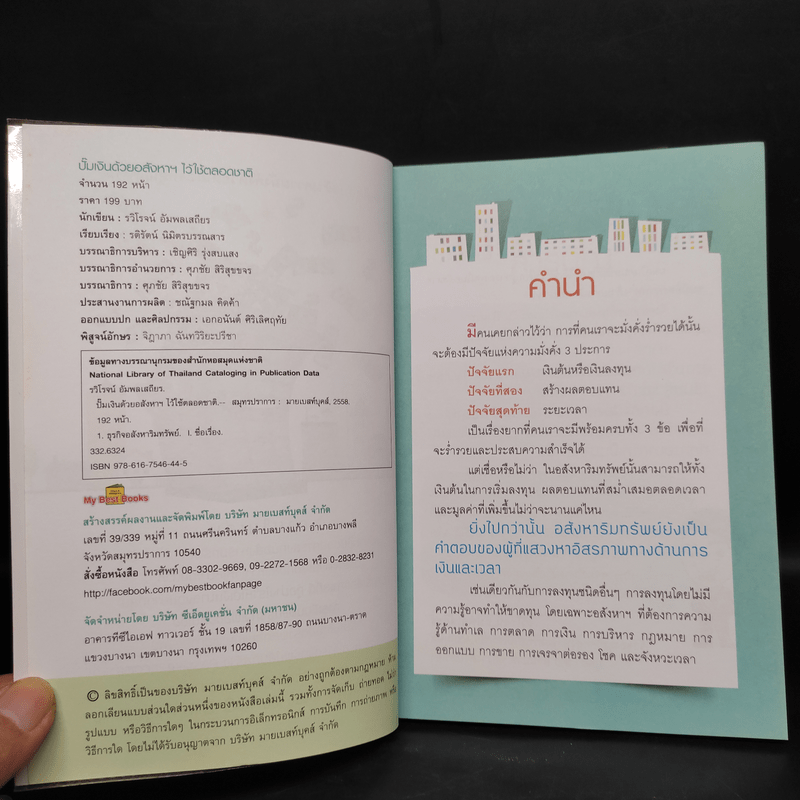 ปั๊มเงินด้วยอสังหาฯ ไว้ใช้ตลอดชาติ
จำนวน 192 หน้า
ราคา 199 บาท
นักเขียน : รวิโรจน์ อัมพลเสถียร
เรียบเรียง : รติรัตน์ นิมิตรบรรณสาร
บรรณาธิการบริหาร : เชิญศิริ รุ่งสบแสง
บรรณาธิการอำนวยการ : ศุภชัย สิริสุขขจร
บรรณาธิการ : ศุภชัย สิริสุขขจร
ประสานงานการผลิต : ชณัฐกมล คิดค้า
ออกแบบปก และศิลปกรรม : เอกอนันต์ ศิริเลิศฤทัย
พิสูจน์อักษร : จิฎาภา ฉันทวีริยะปรีชา
ข้อมูลทางบรรณานุกรมของสำนักหอสมุดแห่งชาติ
National Library of Thailand Cataloging in Publication Data
รวิโรจน์ อัมพลเสถียร.
ปั๊มเงินด้วยอสังหาฯ ไว้ใช้ตลอดชาติ.-- สมุทรปราการ : มายเบสท์บุคส์, 2558.
192 หน้า.
1. ธุรกิจอสังหาริมทรัพย์. I. ชื่อเรื่อง.
332.6324
ISBN 978-616-7546-44-5
My Best Books
สร้างสรรค์ผลงานและจัดพิมพ์โดย บริษัท มายเบสท์บุคส์ จำกัด
เลขที่ 39/339 หมู่ที่ 11 ถนนศรีนครินทร์ ตำบลบางแก้ว อำเภอบางพลี
จังหวัดสมุทรปราการ 10540
สั่งซื้อหนังสือ โทรศัพท์ 08-3302-9669, 09-2272-1568 หรือ 0-2832-8231
http://facebook.com/mybestbookfanpage
จัดจำหน่ายโดย บริษัท ซีเอ็ดยูเคชั่น จำกัด (มหาชน)
อาคารทีซีไอเอฟ ทาวเวอร์ ชั้น 19 เลขที่ 1858/87-90 ถนนบางนา-ตราด
แขวงบางนา เขตบางนา กรุงเทพฯ 10260
© ลิขสิทธิ์เป็นของบริษัท มายเบสท์บุคส์ จำกัด อย่างถูกต้องตามกฎหมาย ห้าม
ลอกเลียนแบบส่วนใดส่วนหนึ่งของหนังสือเล่มนี้ รวมทั้งการจัดเก็บ ถ่ายทอด ไม่ว่า
รูปแบบ หรือวิธีการใดๆ ในกระบวนการอิเล็กทรอนิกส์ การบันทึก การถ่ายภาพ หรือ
วิธีการใด โดยไม่ได้รับอนุญาตจาก บริษัท มายเบสท์บุคส์ จำกัด
คำนำ
มีคนเคยกล่าวไว้ว่า การที่คนเราจะมั่งคั่งร่ำรวยได้นั้น
จะต้องมีปัจจัยแห่งความมั่งคั่ง 3 ประการ
ปัจจัยแรก เงินต้นหรือเงินลงทุน
ปัจจัยที่สอง สร้างผลตอบแทน
ปัจจัยสุดท้าย ระยะเวลา
เป็นเรื่องยากที่คนเราจะมีพร้อมครบทั้ง 3 ข้อ เพื่อที่
จะร่ำรวยและประสบความสำเร็จได้
แต่เชื่อหรือไม่ว่า ในอสังหาริมทรัพย์นั้นสามารถให้ทั้ง
เงินต้นในการเริ่มลงทุน ผลตอบแทนที่สม่ำเสมอตลอดเวลา
และมูลค่าที่เพิ่มขึ้นไม่ว่าจะนานแค่ไหน
ยิ่งไปกว่านั้น อสังหาริมทรัพย์ยังเป็น
คำตอบของผู้ที่แสวงหาอิสรภาพทางด้านการ
เงินและเวลา
เช่นเดียวกันกับการลงทุนชนิดอื่นๆ การลงทุนโดยไม่มี
ความรู้อาจทำให้ขาดทุน โดยเฉพาะอสังหาฯ ที่ต้องการความ
รู้ด้านทำเล การตลาด การเงิน การบริหาร กฎหมาย การ
ออกแบบ การขาย การเจรจาต่อรอง โชค และจังหวะเวลา